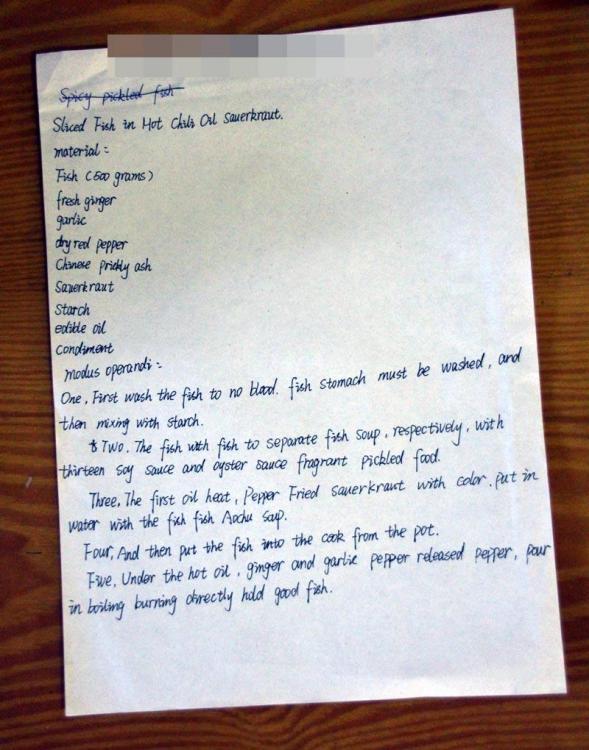 Spicy pickled fish
Sliced Fish in Hot Chili Oil Sauerkraut.
material:
Fish (500 grams)
fresh ginger
garlic
dry red pepper
Chinese prickly ash
Sauerkraut
Starch
edible oil
Condiment
modus operandi:
One, First wash the fish to no blood. fish stomach must be washed, and
then mixing with starch.
Two, The fish with fish to separate fish soup, respectively, with
thirteen soy sauce and oyster sauce fragrant pickled food.
Three, The first oil heat, Pepper Fried sauerkraut with color. put in
water with the fish fish Aochu soup.
Four, And then put the fish into the cook from the pot.
Five, Under the hot oil, ginger and garlic pepper released pepper, pour
in boiling burning directly hold good fish.